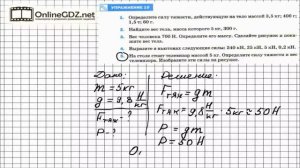 OnlineGDZ.net
УПРАЖНЕНИЕ 10
1. Определите силу тяжести, действующую на тело массой 3,5 кг; 400 г; 1,5 т; 60 г.
2. Найдите вес тела, масса которого 5 кг, 300 г.
3. Вес человека 700 Н. Определите его массу. Сделайте рисунок и покажите вес тела.
4. Выразите в ньютонах следующие силы: 240 кН, 25 кН, 5 кН, 0,2 кН.
5. На столе стоит телевизор массой 5 кг. Определите силу тяжести и вес телевизора. Изобразите эти силы на рисунке.
Дано:
m = 5кг
g = 9,8 Н/кг
Fтяж - ?
P - ?
Решение:
Fтяж = gm
Fтяж = 9,8 Н/кг · 5кг ≈ 50Н
P = gm
P = 50Н
0,